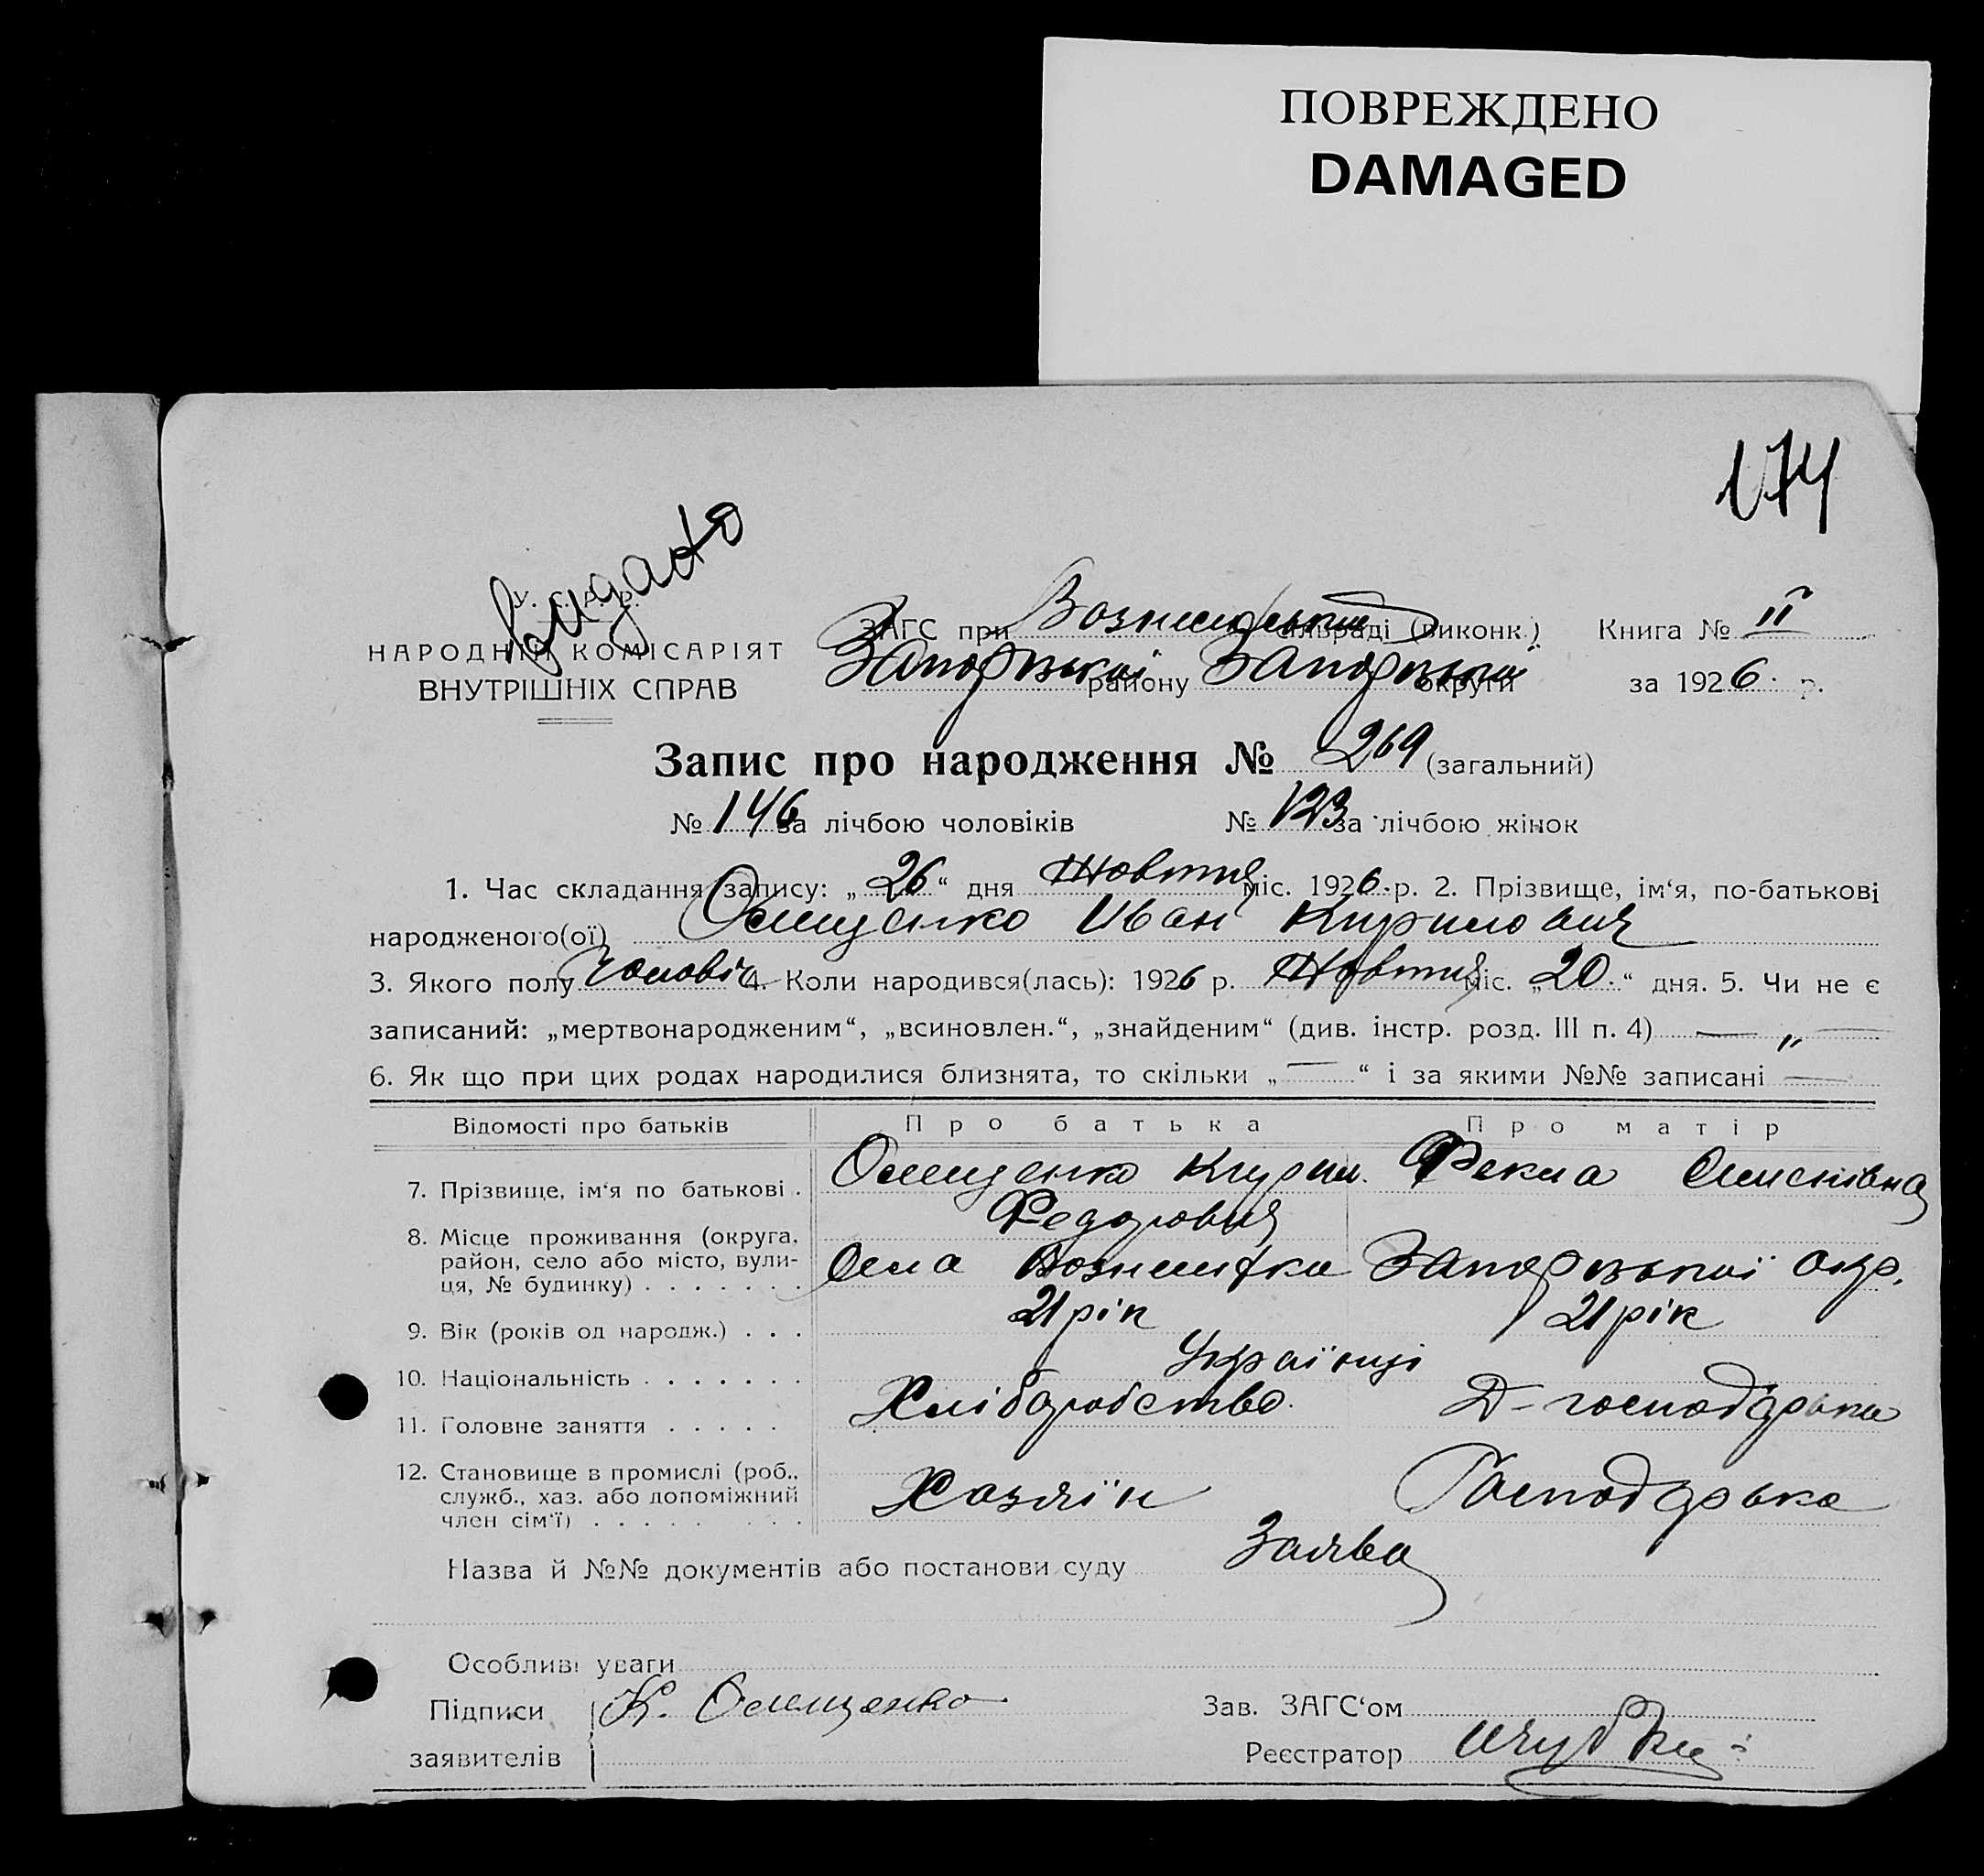 ПОВРЕЖДЕНО
DAMAGED
174
Видано
У. С. Р. Р.
НАРОДНІЙ КОМІСАРІЯТ
ВНУТРІШНІХ СПРАВ
ЗАГС при сільраді (виконк.) Книга № II
Запорізької району Запорізької округи за 1926 р.
Запис про народження № 269 (загальний)
№ 146 за лічбою чоловіків № 123 за лічбою жінок
1. Час складання запису: „26“ дня Жовтня міс. 1926 р. 2. Прізвище, ім‘я, по-батькові
народженого(ої) Іван Кирилович
3. Якого полу Чоловіч 4. Коли народився(лась): 1926 р. Жовтня міс. „20.“ дня. 5. Чи не є
записаний: „мертвонародженим“, „всиновлен.“, „знайденим“ (див. інстр. розд. III п. 4) — „ —
6. Як що при цих родах народилися близнята, то скільки „—“ і за якими №№ записані —
Відомості про батьків Про батька Про матір
7. Прізвище, ім‘я по батькові . Кирил. Фекла
Федорович
8. Місце проживання (округа, район, село або місто, вулиця, № будинку) . . . . . . . Села Вознесенка Запорізької окр.
9. Вік (років од народж.) . . . 21 рік 21 рік
10. Національність . . . . . . . Українці
11. Головне заняття . . . . . Хліборобство. Д-господарька
12. Становище в промислі (роб., служб., хаз. або допоміжний член сім‘ї) . . . . . . . . Хазяїн Господарька
Назва й №№ документів або постанови суду Заява
Особливі уваги
Підписи К. Зав. ЗАГС‘ом
заявителів Реєстратор